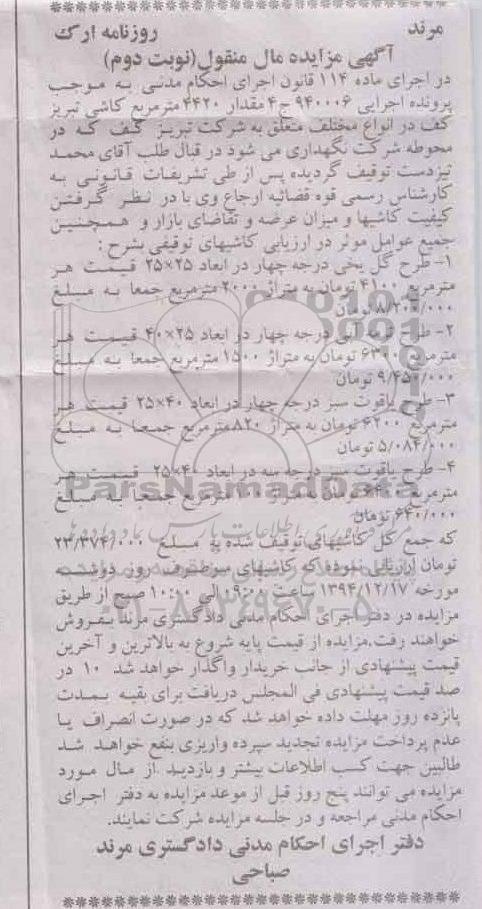 مرند روزنامه ارک
آگهی مزایده مال منقول(نوبت دوم)
در اجرای ماده ۱۱۴ قانون اجرای احکام مدنی به موجب
پرونده اجرایی ۹۴۰۰۰۶ ج۴ مقدار ۴۴۲۰ مترمربع کاشی تبریز
کف در انواع مختلف متعلق به شرکت تبریز کف که در
محوطه شرکت نگهداری می شود در قبال طلب آقای محمد
تیزدست توقیف گردیده پس از طی تشریفات قانونی به
کارشناس رسمی قوه قضائیه ارجاع وی با در نظر گرفتن
کیفیت کاشیها و میزان عرضه و تقاضای بازار و همچنین
جمیع عوامل موثر در ارزیابی کاشیهای توقیفی بشرح :
۱- طرح گل یخی درجه چهار در ابعاد ۲۵×۲۵ قیمت هر
مترمربع ۴۱۰۰ تومان به متراژ ۲۰۰۰ مترمربع جمعا به مبلغ
۸/۲۰۰/۰۰۰ تومان
۲- طرح آبی درجه چهار در ابعاد ۲۵×۴۰ قیمت هر
مترمربع ۶۳۰۰ تومان به متراژ ۱۵۰۰ مترمربع جمعا به مبلغ
۹/۴۵۰/۰۰۰ تومان
۳- طرح یاقوت سبز درجه چهار در ابعاد ۴۰×۲۵ قیمت هر
مترمربع ۶۲۰۰ تومان به متراژ ۸۲۰مترمربع جمعا به مبلغ
۵/۰۸۴/۰۰۰ تومان
۴- طرح یاقوت سبز درجه سه در ابعاد ۴۰×۲۵ قیمت هر
مترمربع تومان به متراژ ۱۰۰ مترمربع جمعا به مبلغ
۶۴۰/۰۰۰ تومان
که جمع کل کاشیهای توقیف شده به مبلغ ۲۳/۳۷۴/۰۰۰
تومان ارزیابی نموده که کاشیهای مرطوف روز دوشنبه
مورخه ۱۳۹۴/۱۲/۱۷ ساعت ۰۹:۰۰ الی ۱۰:۰۰ صبح از طریق
مزایده در دفتر اجرای احکام مدنی دادگستری مرند بفروش
خواهند رفت.مزایده از قیمت پایه شروع به بالاترین و آخرین
قیمت پیشنهادی از جانب خریدار واگذار خواهد شد ۱۰ در
صد قیمت پیشنهادی فی المجلس دریافت برای بقیه بمدت
پانزده روز مهلت داده خواهد شد که در صورت انصراف یا
عدم پرداخت مزایده تجدید سپرده واریزی بنفع خواهد شد
طالبین جهت کسب اطلاعات بیشتر و بازدید .از مال مورد
مزایده می توانند پنج روز قبل از موعد مزایده به دفتر اجرای
احکام مدنی مراجعه و در جلسه مزایده شرکت نمایند.
دفتر اجرای احکام مدنی دادگستری مرند
صباحی
ParsNamadData
۰۲۱-۸۸۳۴۹۶۷۰-۵